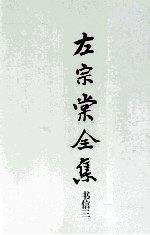 左宗棠全集
书信三